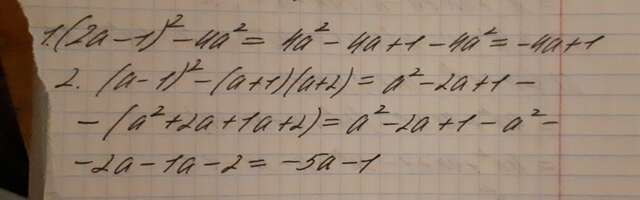 1. (2a-1)² - 4a² = 4a² - 4a + 1 - 4a² = -4a + 1
2. (a-1)² - (a+1)(a+2) = a² - 2a + 1 -
- (a² + 2a + 1a + 2) = a² - 2a + 1 - a² -
- 2a - 1a - 2 = -5a - 1